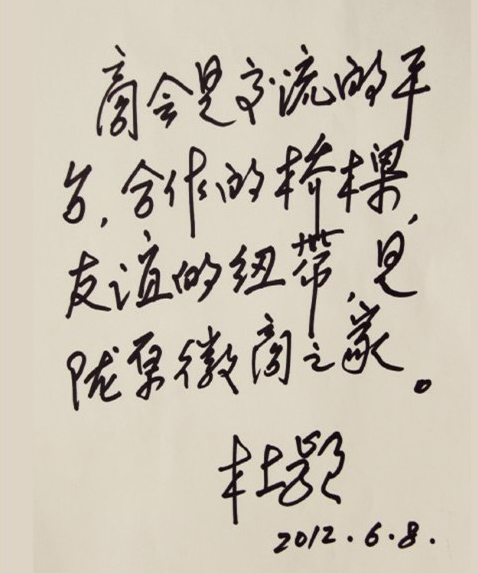 商会是交流的平
台,合作的桥梁,
友谊的纽带,是
陇原徽商之家。
杜颖
2012.6.8.